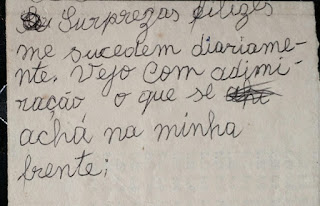 Surprezas filizes
me sucedem diariame-
nte. Vejo com adimi-
ração o que se
achá na minha
frente;